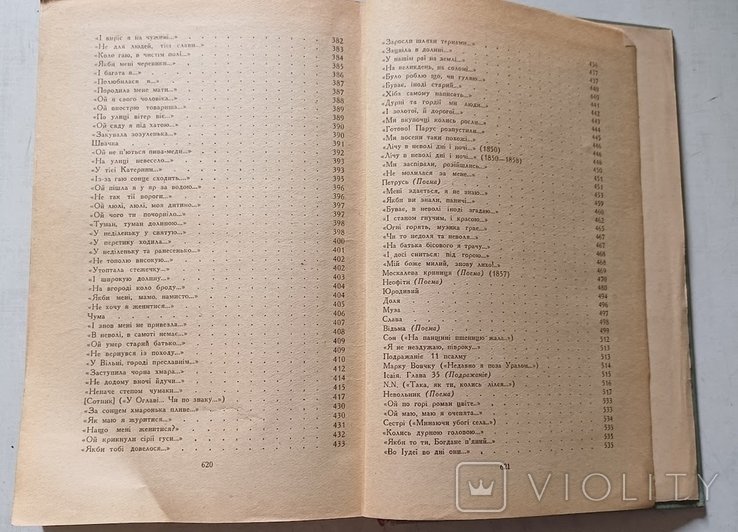 «І виріс я на чужині...» 382
«Не для людей, тієї слави... 383
«Коло гаю, в чистім полі... 384
«Якби мені черевики...» 385
«І багата я...» 386
«Полюбилася я...» 387
«Породила мене мати...» 387
«Ой я свого чоловіка...» 388
«Ой виострю товариша...» 389
«По улиці вітер віє...» 389
«Ой сяду я під хатою...» 390
«Закувала зозуленька...» 390
Швачка 391
«Ой не п'ються пива-меди...» 392
«На улиці невесело...» 393
«У тієї Катерини...» 393
«Із-за гаю сонце сходить... 395
«Ой пішла я у яр за водою...» 396
«Не так тії вороги...» 397
«Ой люлі, люлі, моя дитино...» 397
«Ой чого ти почорніло...» 398
«Туман, туман долиною...» 398
«У неділеньку у святую... 399
«У перетику ходила...» 400
«У неділеньку та ранесенько...» 401
«Не тополю високую...» 402
«Утоптала стежечку...» 402
«І широкую долину... 403
«На вгороді коло броду...» 404
«Якби мені, мамо, намисто...» 404
«Не хочу я женитися...» 405
Чума 406
«І знов мені не привезла... 407
«В неволі, в самоті немає...» 408
«Ой умер старий батько... 409
«Не вернувся із походу... 409
«У Вільні, городі преславнім... 410
«Заступила чорна хмара... 412
«Не додому вночі йдучи... 415
«Неначе степом чумаки... 416
[Сотник] («У Оглаві... Чи по знаку...») 417
«За сонцем хмаронька пливе...» 430
«Як маю я журитися...» 430
«Нащо мені женитися?» 431
«Ой крикнули сірії гуси...» 432
«Якби тобі довелося...» 433
620
«Заросли шляхи тернами...»
«Зацвіла в долині...»
«У нашім раї на землі... 436
«На великдень, на соломі... 437
«Було роблю що, чи гуляю... 439
«Буває, іноді старий... 440
«Хіба самому написать... 440
«Дурні та гордії ми люди... 441
«І золотої, й дорогої... 442
«Ми вкупочці колись росли...» 443
«Готово! Парус розпустили...» 444
«Ми восени таки похожі... 445
«Лічу в неволі дні і ночі...» (1850) 446
«Лічу в неволі дні і ночі...» (1850—1858) 446
«Ми заспівали, розійшлись... 448
«Не молилася за мене... 450
Петрусь (Поема) 451
«Мені здається, я не знаю...» 453
«Якби ви знали, паничі...» 458
«Буває, в неволі іноді згадаю...» 460
«І станом гнучим, і красою...» 463
«Огні горять, музика грає...» 465
«Чи то недоля та неволя...» 466
«На батька бісового я трачу...» 467
«І досі сниться: під горою... 468
«Мій боже милий, знову лихо!..» 468
Москалева криниця (Поема) (1857) 469
Неофіти (Поема) 470
Юродивий 491
Доля 494
Муза 496
Слава 498
Відьма (Поема) 499
Сон («На панщині пшеницю жала...») 512
«Я не нездужаю, нівроку...» 513
Подражаніє 11 псалму 513
Марку Вовчку («Недавно я поза Уралом...») 515
Ісаія. Глава 35 (Подражаніє) 515
N. N. («Така, як ти, колись лілея...») 516
Невольник (Поема) 517
«Ой по горі роман цвіте... 533
«Ой маю, маю я оченята...» 534
Сестрі («Минаючи убогі села...») 534
«Колись дурною головою...» 535
«Якби то ти, Богдане п'яний...» 535
«Во Іудеї во дні они...» 535
621
VIOLITY